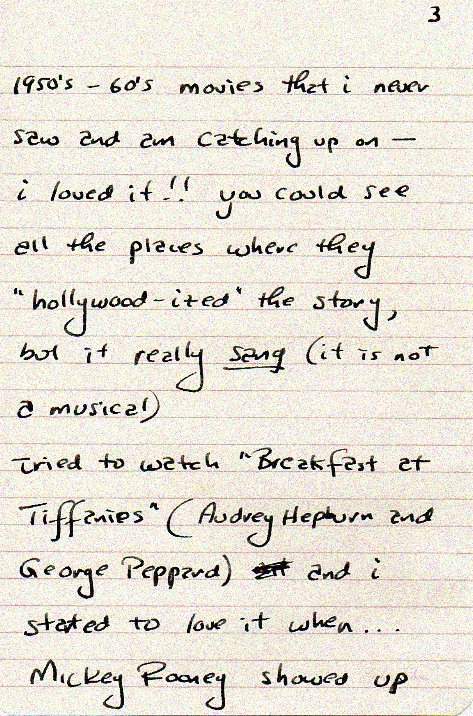 3
1950's - 60's movies that i never
saw and am catching up on —
i loved it!! you could see
all the places where they
"hollywood-ized" the story,
but it really sang (it is not
a musical)
tried to watch "Breakfast at
Tiffanies" (Audrey Hepburn and
George Peppard) and i
stated to love it when...
Mickey Rooney showed up